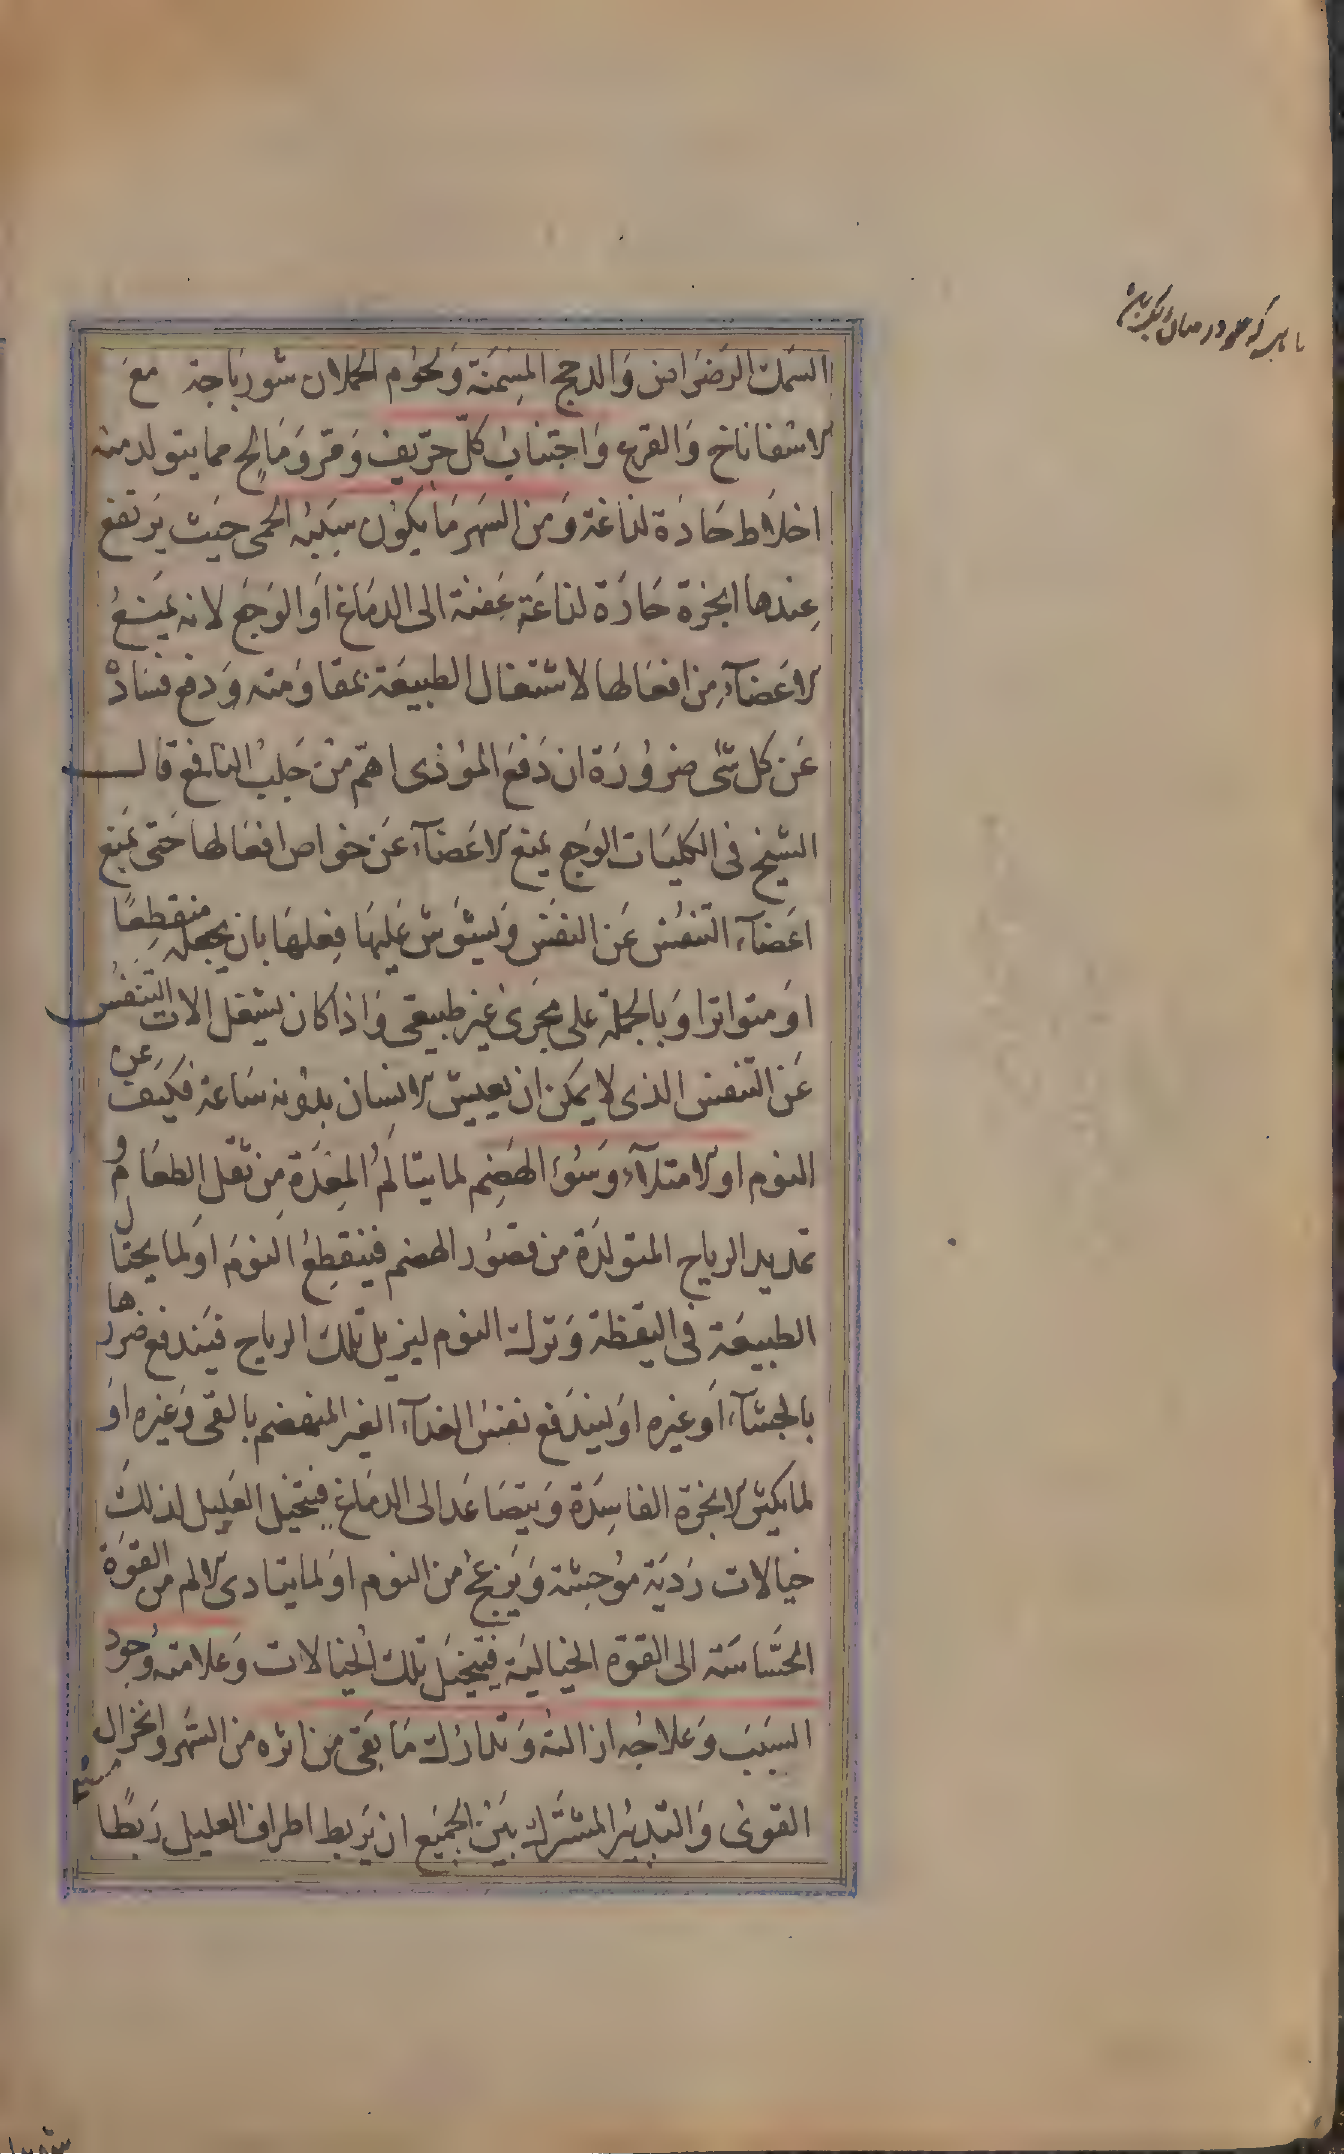 السمك الرضراضى والدجج المسمنة ولحوم الحملان شورباجة مع
الاسفاناخ والقرع واجتناب كل حرّيف ومرّ ومالح مما يتولد منه
اخلاط حادة لذاعة ومن السهر ما يكون سببه الحمى حيث يرتفع
عندها ابخرة حادة لذاعة عفنة الى الدماغ او الوجع لانه يمنع
الاعضآء من افعالها لاشتغال الطبيعة بمقاومته ودفع فساده
عن كل شئ ضرورة ان دفع الموذى اهمّ من جلب النافع قال
الشيخ فى الكليات الوجع يمنع الاعضآء عن خواص افعالها حتى يمنع
اعضآء التنفس عن النفس ويشوش عليها فعلها بان يجعله منقطعًا
او متواترا وبالجملة على مجرى غير طبيعى واذا كان يشغل الات التنفس
عن التنفس الذى لا يمكن ان يعيش الانسان بدونه ساعة فكيف عن
النوم او الامتلآء وسوء الهضم لما يتالم المعدة من ثقل الطعام و
تمديد الرياح المتولدة من قصور الهضم فينقطع النوم او لما يحتال
الطبيعة فى اليقظة وترك النوم ليزيل تلك الرياح فيندفع ضررها
بالجشآء او غيره او ليندفع نفس الغدآء الغير المنهضم بالقى وغيره او
لما يكثر الابخرة الفاسدة ويتصاعد الى الدماغ فيتخيل العليل لذلك
خيالات ردية موحشة ويزعج من النوم او لما يتادى الالم من القوة
الحساسة الى القوة الخيالية فيتخيل تلك الخيالات وعلامته وجود
السبب وعلاجه ازالته وتدارك ما بقى من اثره من السهر وانخزال
القوى والتدبير المشترك بين الجميع ان يربط اطراف العليل ربطا